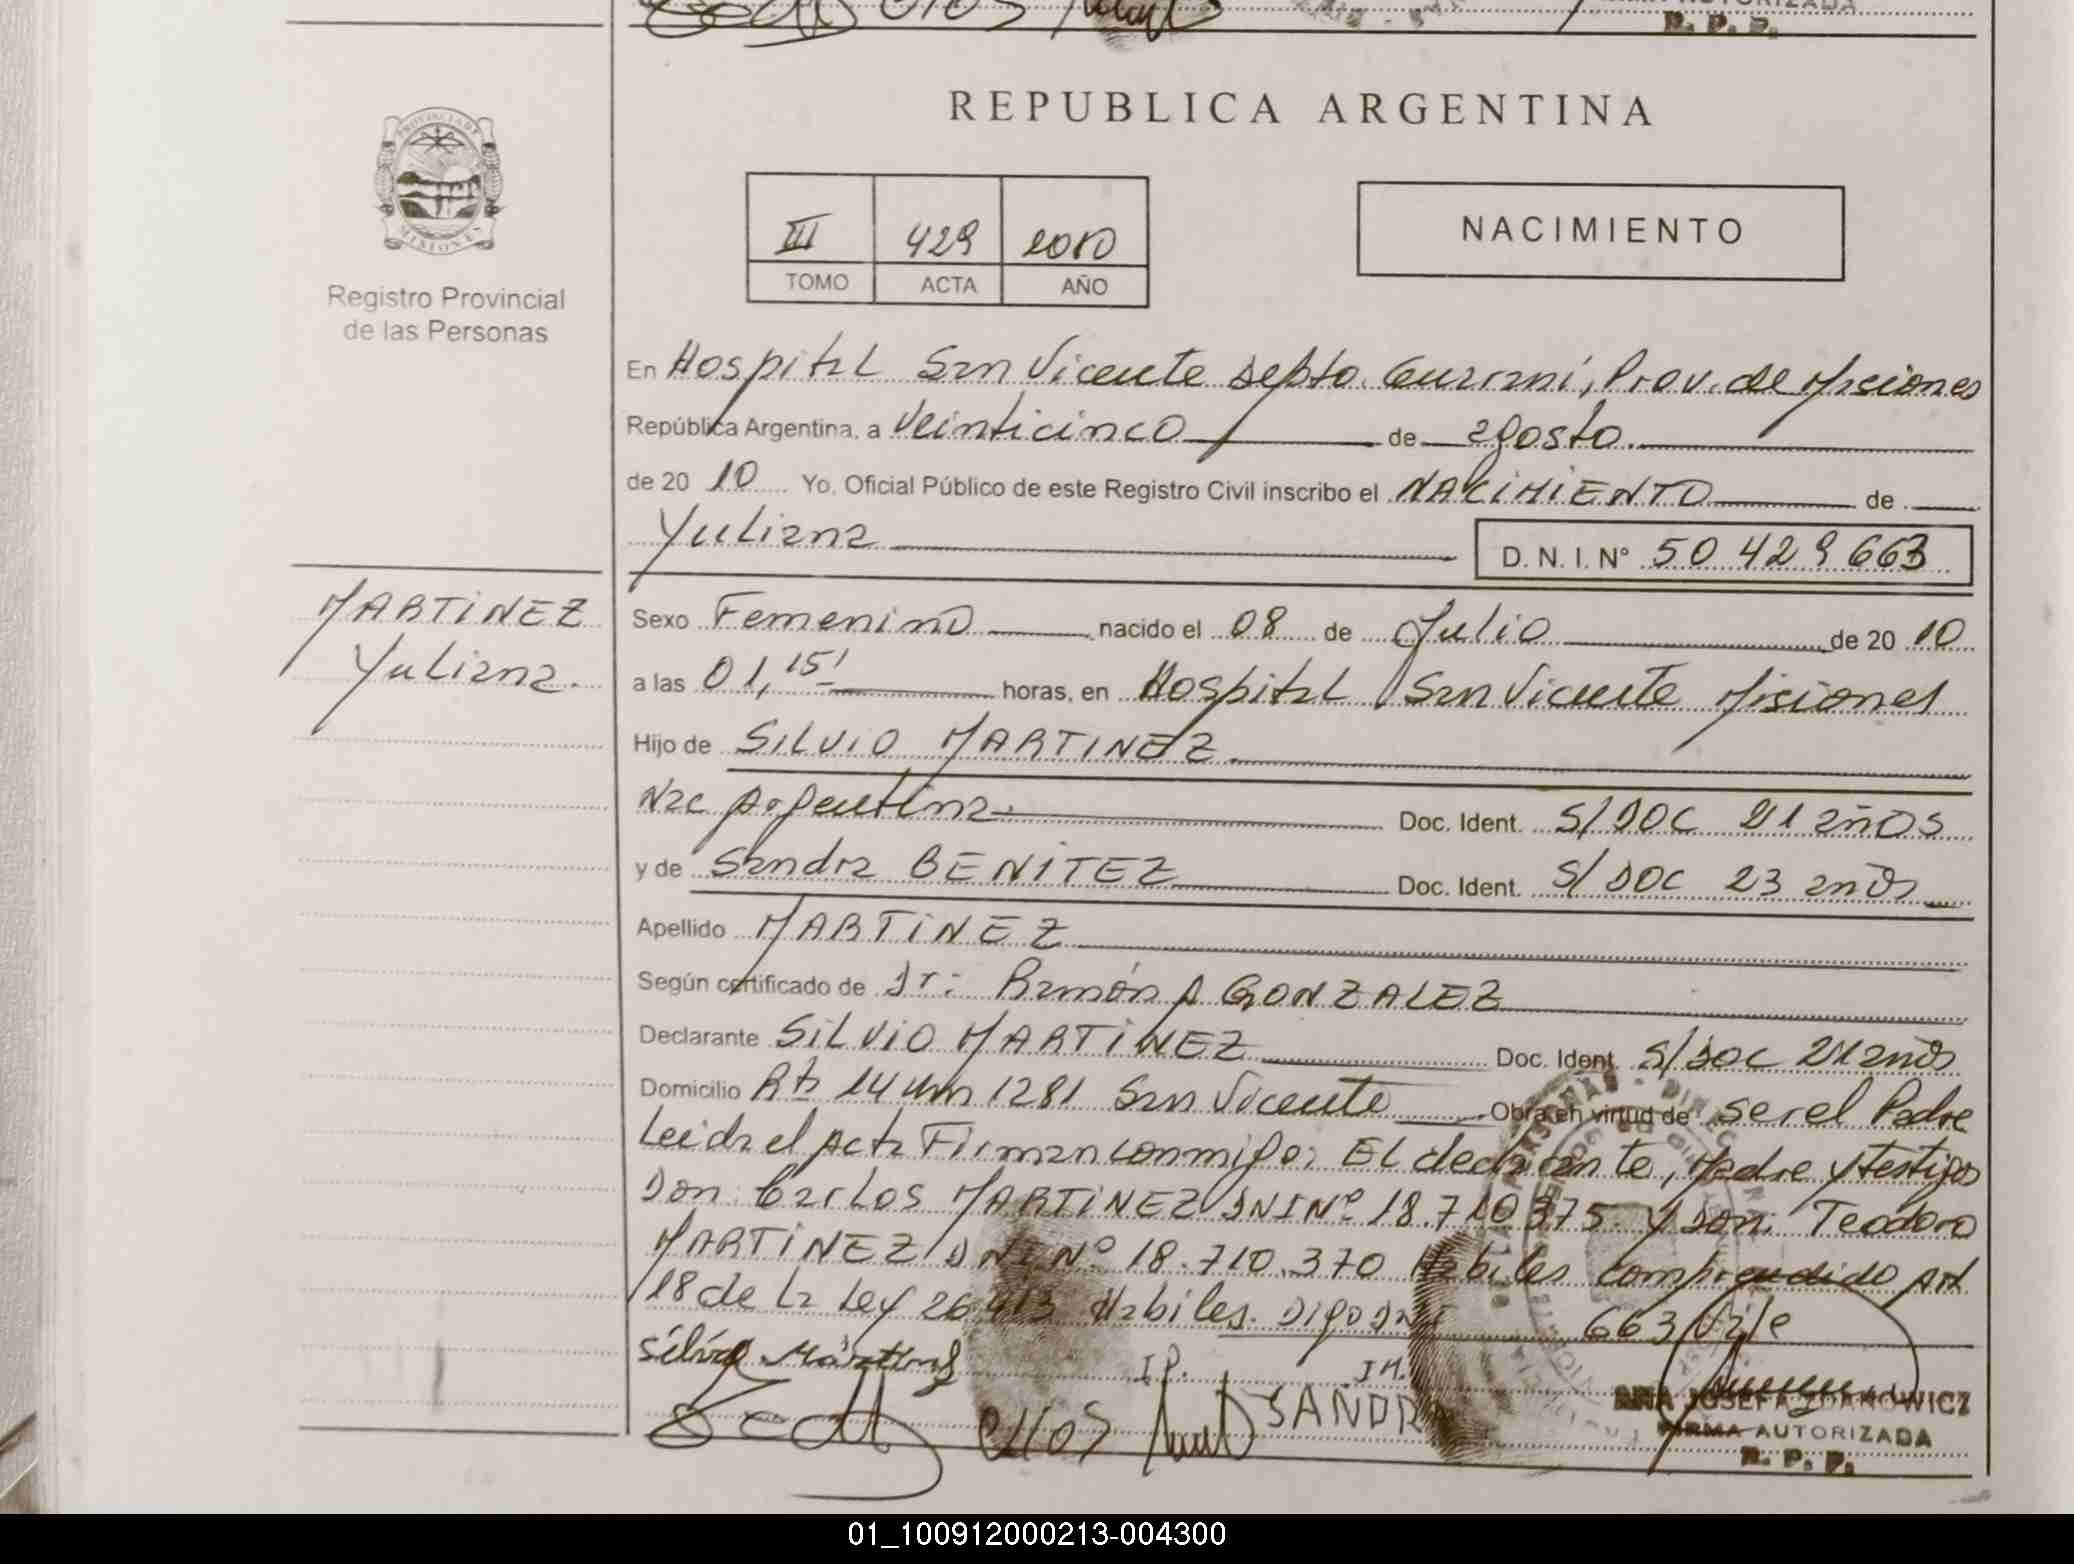 AUTORIZADA
R. P. P.
PROVINCIA DE
MISIONES
Registro Provincial
de las Personas
REPUBLICA ARGENTINA
III 429 2010
TOMO ACTA AÑO
NACIMIENTO
En Hospital San Vicente Depto. Guaraní, Prov. de Misiones
República Argentina, a Veinticinco de agosto.
de 20 10 Yo, Oficial Público de este Registro Civil inscribo el NACIMIENTO de
Yuliana D. N. I. N° 50 429 663
MARTINEZ
Yuliana.
Sexo Femenino nacido el 08 de Julio de 20 10
a las 01,15' horas, en Hospital San Vicente Misiones
Hijo de SILVIO MARTINEZ.
Nac Argentina. Doc. Ident. S/DOC 21 años
y de Sandra BENITEZ Doc. Ident. S/DOC 23 años
Apellido MARTINEZ
Según certificado de Dr: Ramón A GONZALEZ
Declarante SILVIO MARTINEZ Doc. Ident. S/DOC 21 años
Domicilio Rta 14 km 1281 San Vicente Obra en virtud de ser el Padre
Leida el Acta Firman conmigo: El declarante, Madre y testigos
Don: Carlos MARTINEZ DNI Nº 18.710.375 y Don: Teodoro
MARTINEZ DNI Nº 18.710.370 Habiles comprendido Art
18 de la Ley 26.413 Habiles. Digo DNI 663 Vale
Silvio Martines I.P. I.M.
SANDRA
ANA JOSEFA ZDANOWICZ
FIRMA AUTORIZADA
R. P. P.
01_100912000213-004300